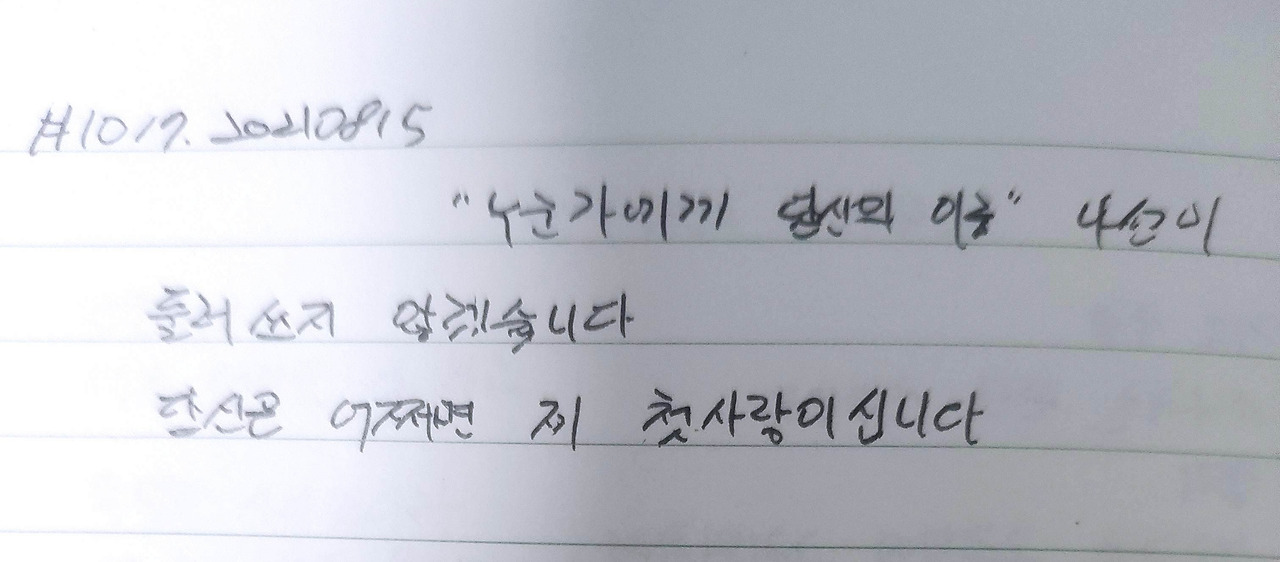 #1017. 20210815
"누군가에게 당신의 이름" 나선미
둘러 쓰지 않겠습니다
당신은 어쩌면 제 첫사랑이십니다